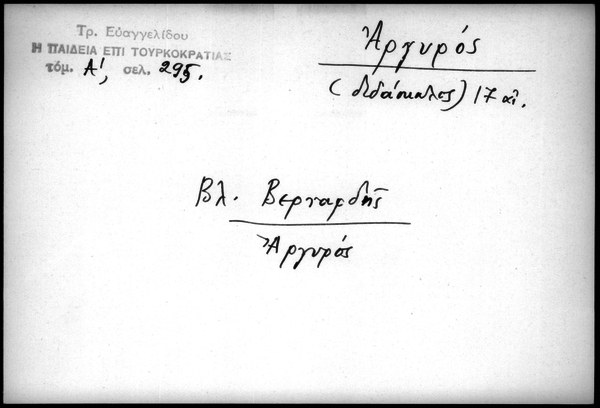 Τρ. Εὐαγγελίδου
Η ΠΑΙΔΕΙΑ ΕΠΙ ΤΟΥΡΚΟΚΡΑΤΙΑΣ
τόμ. Α', σελ. 295.
Ἀργυρός
(διδάσκαλος) 17 αἰ.
Βλ. Βερναρδῆς
Ἀργυρός